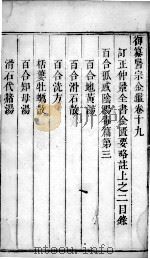 御纂醫宗金鑑卷十九
訂正仲景全書金匱要略註上之二目錄
百合狐惑陰陽毒篇第三
百合地黃湯
百合滑石散
百合洗方
栝蔞牡蠣散
百合知母湯
滑石代赭湯